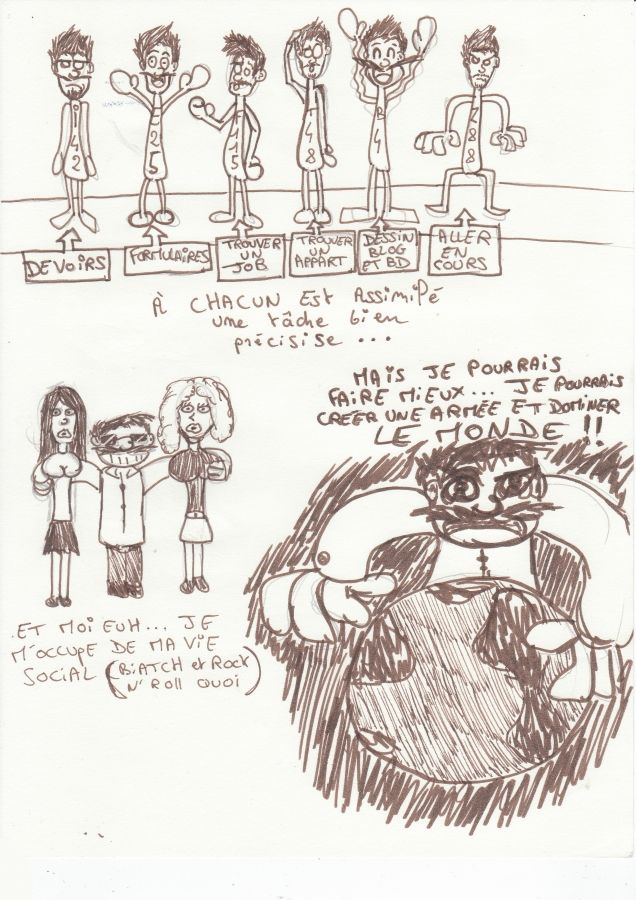 42
25
15
48
84
88
DEVOIRS
FORMULAIRES
TROUVER
UN
JOB
TROUVER
UN
APPART
DESSIN
BLOG
ET BD
ALLER
EN
COURS
À CHACUN EST ASSIMILÉ
UNE TÂCHE BIEN
PRÉCISISE ...
MAIS JE POURRAIS
FAIRE MIEUX... JE POURRAIS
CRÉER UNE ARMÉE ET DOMINER
LE MONDE !!
ET MOI EUH... JE
M'OCCUPE DE MA VIE
SOCIAL (BIATCH et ROCK
N' ROLL QUOI)